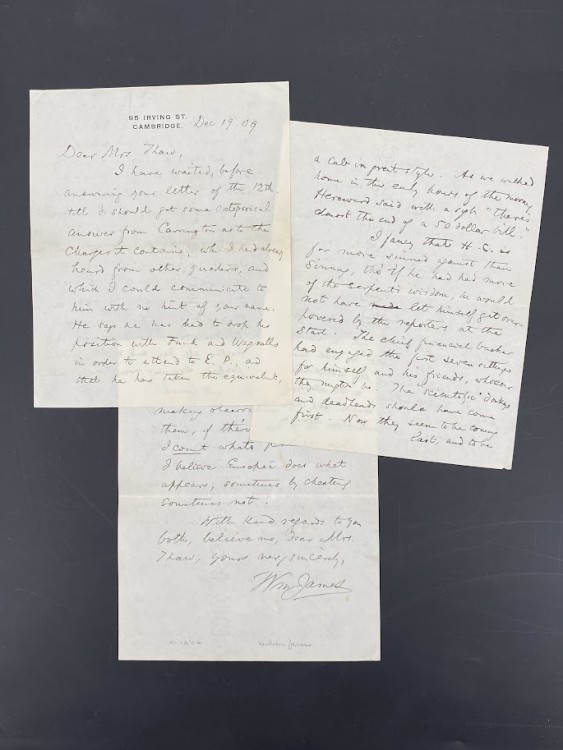 95 IRVING ST.
CAMBRIDGE.
Dec 19. 09
Dear Mrs. Thaw,
I have waited, before
answering your letter of the 12th
till I should get some categorical
answer from Carrington as to the
charges it contains, wh. I had already
heard from other quarters, and
which I could communicate to
him with no hint of your name.
He says he has had to drop his
position with Funk and Wagnalls
in order to attend to E. P., and
that he has taken the equivalent,
a cab in great style. As we walked
home in the early hours of the morning
Hereward said with a sigh "there's
almost the end of a 50 dollar bill."
I fancy that H. C. is
far more sinned against than
sinning, tho' if he had had more
of the serpent's wisdom, he would
not have let himself get over-
powered by the reporters at the
start. The chief financial backer
had engaged the first seven sittings
for himself and his friends, whoever
they might be. The "Scientific"
and deadheads should have come
first. Now they seem to be coming
last, and to be
making
them, if
I can't
I believe Eusapia does what
appears, sometimes by cheating
sometimes not.
With kind regards to you
both, believe me, dear Mrs.
Thaw, yours very sincerely,
Wm James
William James